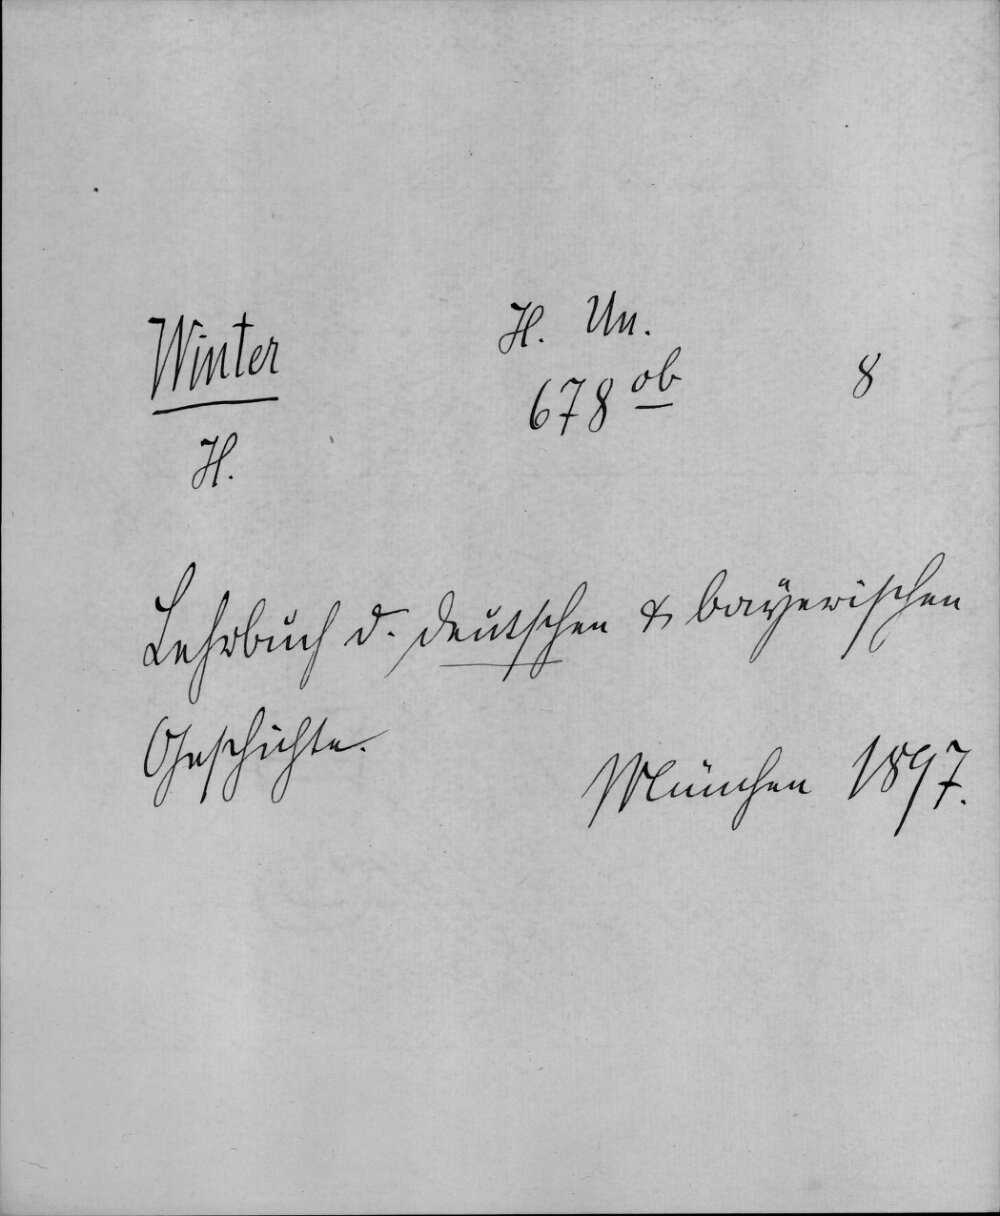 Winter
H. Un.
678 ob
8
H.
Lehrbuch d. deutschen & bayerischen
Geschichte.
München 1897.